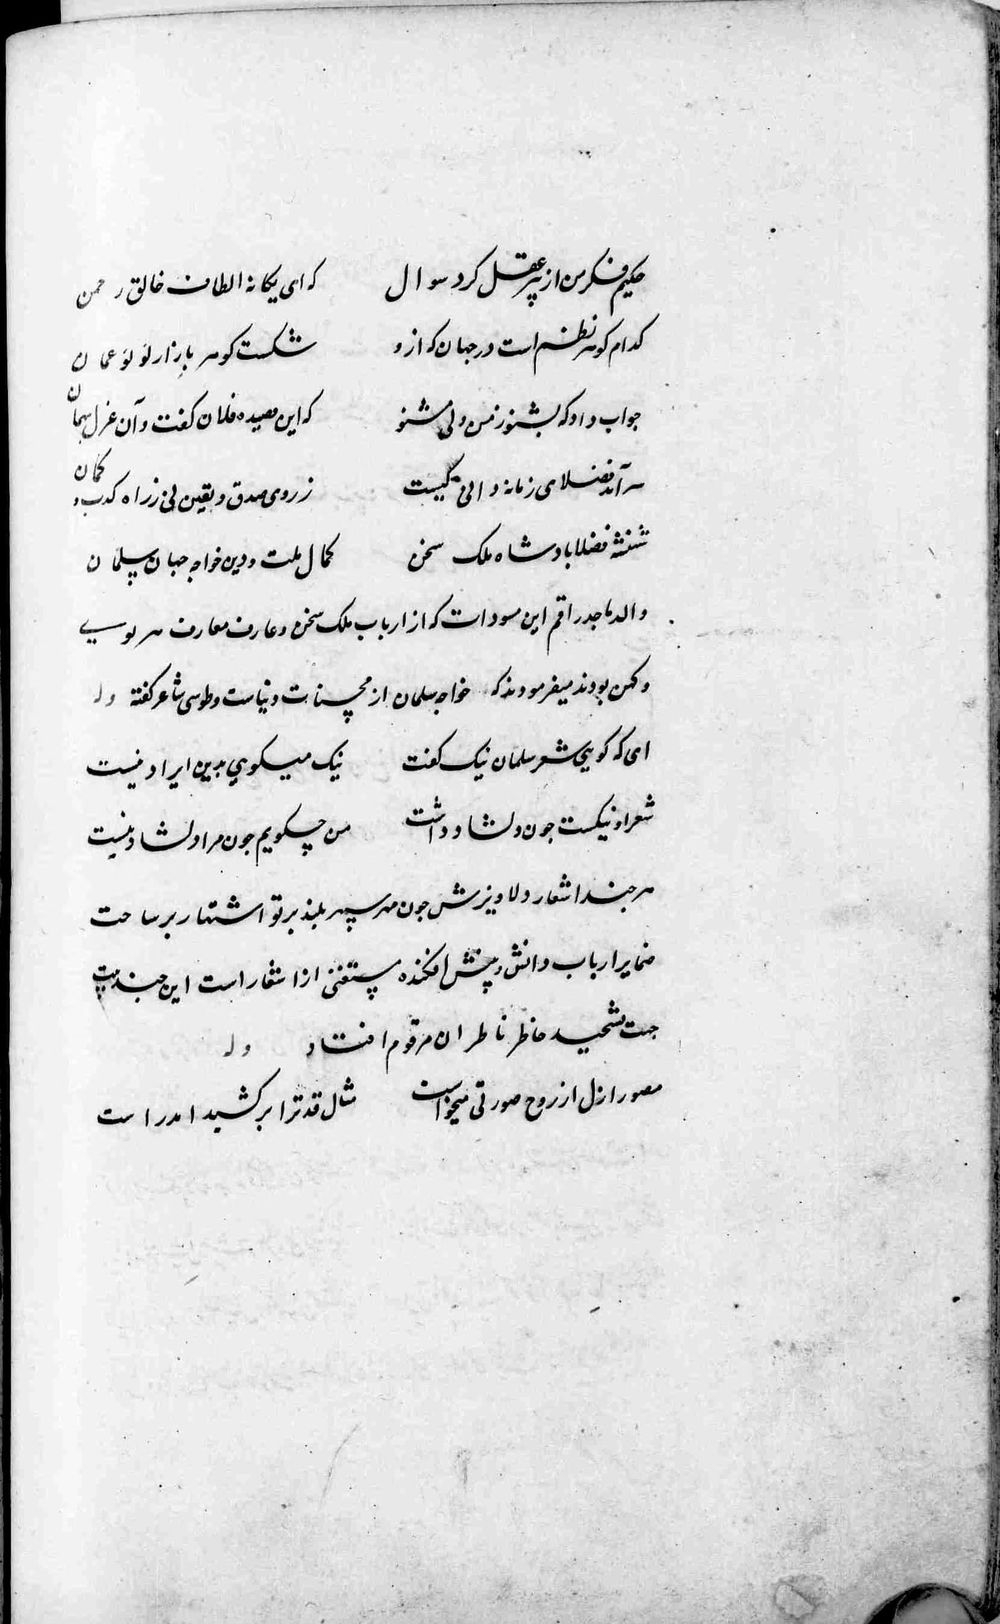 حکیم فکر من از پیر عقل کرد سوال که ای یکانه الطاف خالق رحمن
کدام کوهر نظم است در جهان که ازو شکست کوهر بازار لؤلؤ عمان
جواب داد که بشنو ز من ولی مشنو که این قصیده فلان کفت و آن غزل بهمان
سرآمد فضلای زمانه دانی کیست ز روی صدق و یقین نی ز راه کذب و کمان
شهنشه فضلا بادشاه ملک سخن کمال ملت و دین خواجه جهان سلمان
والد ماجد راقم این مسودات که از ارباب ملک سخن و عارف معارف هر نوی
و کهن بودند میفرمودند که خواجه سلمان از محسنات دنیاست و طوسی شاعر کفته وله
ای که کویی شعر سلمان نیک کفت نیک میکویی بدین ایراد نیست
شعر او نیکست جون دلشاد داشت من چکویم جون مرا دلشاد نیست
هر جند اشعار دلاویزش جون مهر سپهر بلند برتو اشتهار بر ساحت
ضمایر ارباب دانش و بینش افکنده مستغنی از اشعار است این جند بیت
جهت تشحید خاطر ناظران مرقوم افتاد وله
مصور ازل از روح صورتی میخواست مثال قد ترا برکشید امد راست